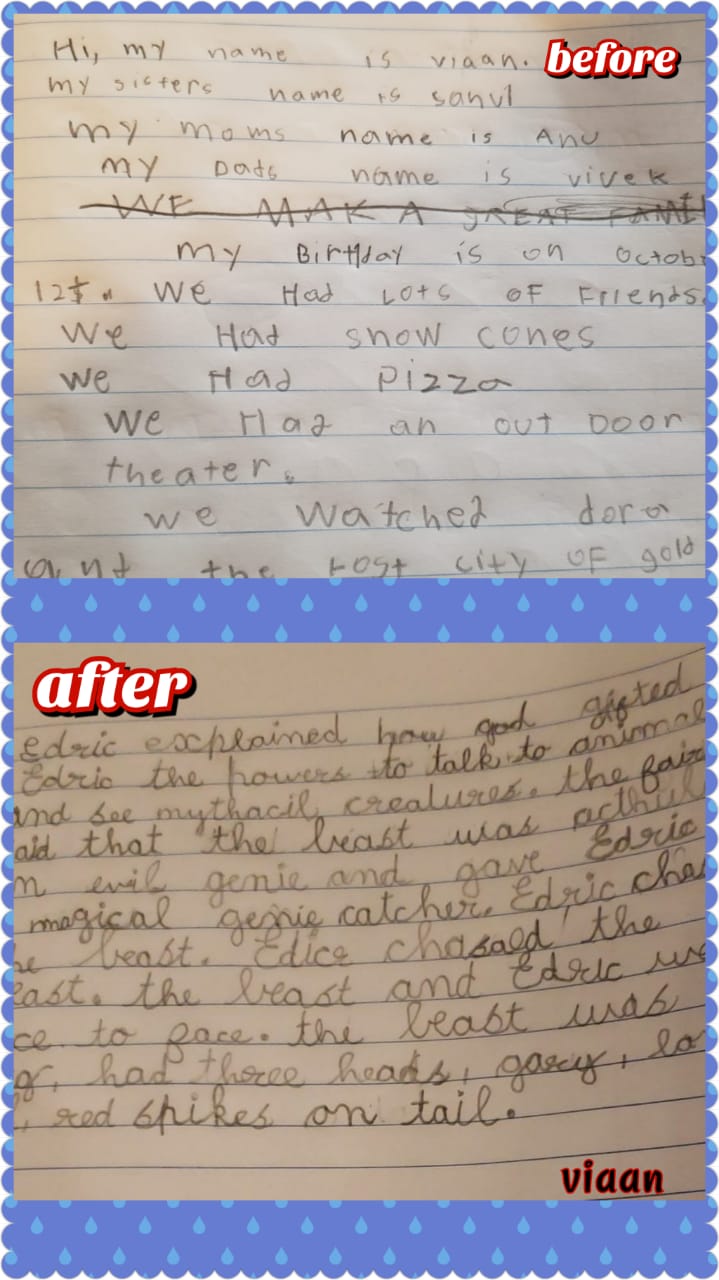 before
Hi, my name is viaan.
my sisters name is sanvi
my moms name is Anu
my Dads name is vivek
WE MAK A GREAT FAMI
my Birthday is on octob
12t. We Had Lots of Friends.
We Had snow cones
We Had Pizza
We Had an out Door
theater.
we watched dora
and the Lost city of gold
after
Edric explained how god gifted
Edric the powers to talk to animal
and see mythacil creatures. the fair
aid that the beast was acthiul
n evil genie and gave Edric
magical genie catcher. Edric chas
he beast. Edice chasaed the
east. the beast and Edric we
ce to pace. the beast was
g, had three heads, gary, lo
, red spikes on tail.
viaan